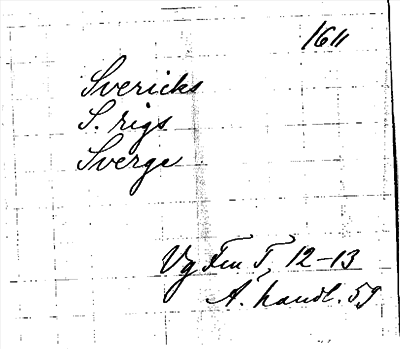 1611
Svericks
S. rigs
Sverge
Vg Fm T, 12-13
Ä. handl. 59